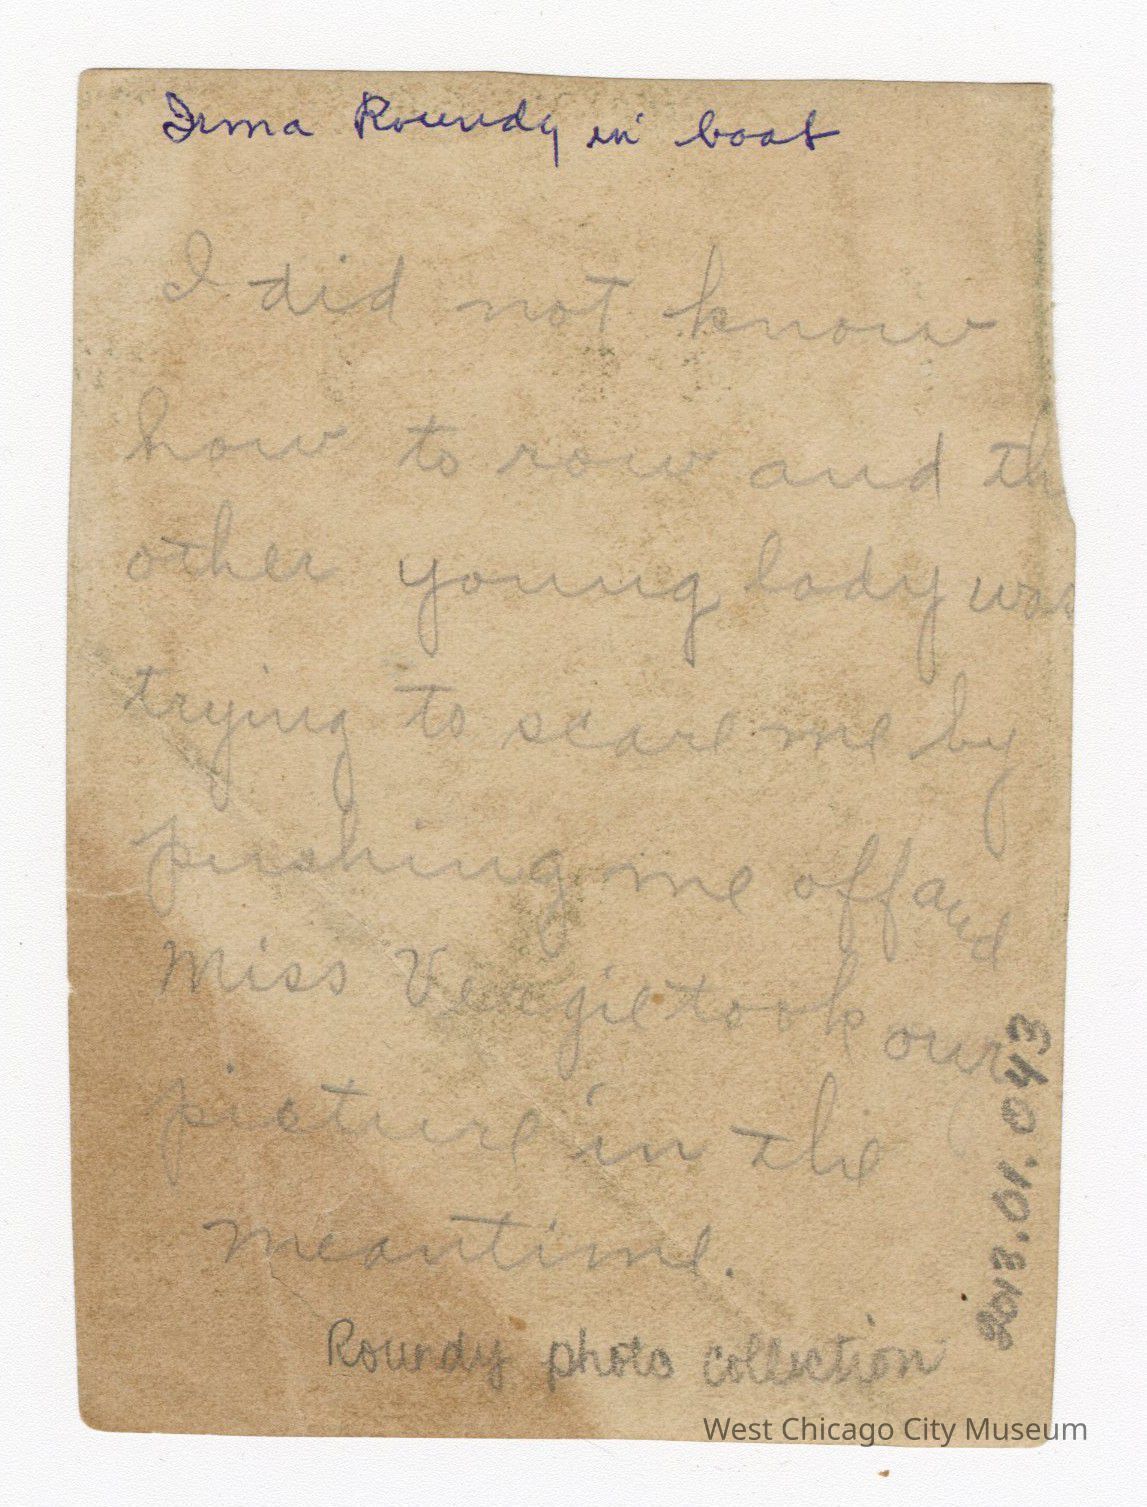 Irma Roundy in boat
I did not know
how to row and th
other young lady was
trying to scare me by
pushing me off and
Miss Vergie took our
picture in the
meantime.
Roundy photo collection
2013.01.043
West Chicago City Museum